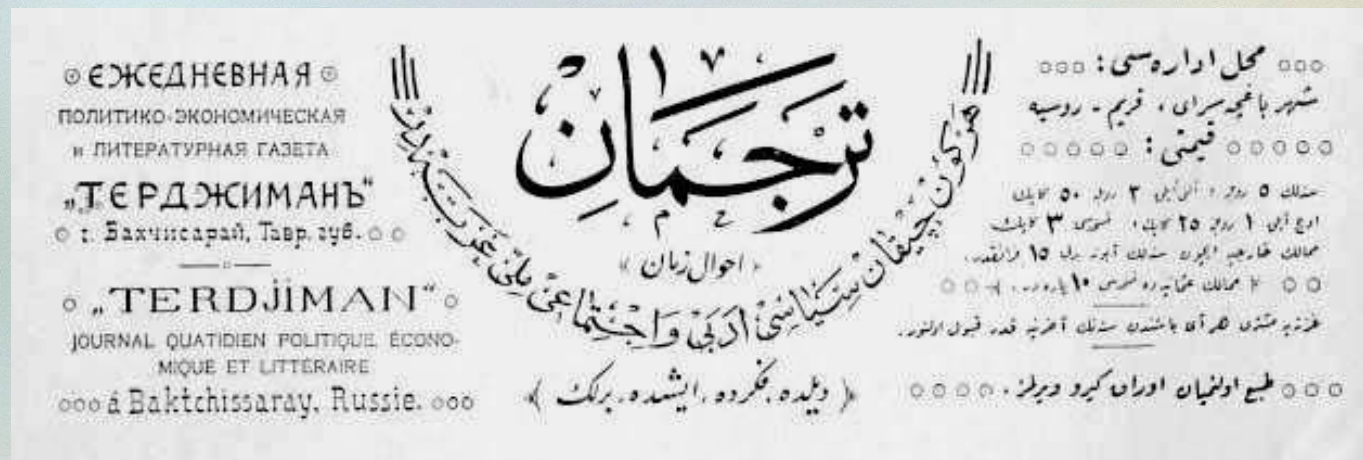 ЕЖЕДНЕВНАЯ
ПОЛИТИКО-ЭКОНОМИЧЕСКАЯ
и ЛИТЕРАТУРНАЯ ГАЗЕТА
„ТЕРДЖИМАНЪ“
г. Бахчисарай, Тавр. губ.
„TERDJiMAN“
JOURNAL QUATIDIEN POLITIQUE ÉCONO-
MIQUE ET LITTÉRAIRE
á Baktchissaray, Russie.
ترجمان
١ ٧ ٢ م ح
احوال زمان
هر كون چيقان سياسى ادبى و اجتماعى ملى غزته در
﴿ ديلده، فكرده، ايشده، برلك ﴾
محل اداره سى :
شهر باغچه سراى ، قريم - روسيه
قيمتى :
سنه لك ٥ روبله ، آلتى آيلق ٣ روبله ٥٠ كاپك
اوچ آيلق ١ روبله ٢٥ كاپك ، نسخه سى ٣ كاپك
ممالك خارجيه ايچون سنه لك آبونه بدلى ١٥ فرانقدر.
ممالك عثمانيه ده نسخه سى ١٠ پاره در.
غزته يه مشترى هر آى باشندن سنه نك آخرينه قدر قبول اولنور.
طبع اولنميان اوراق كيرو ويرلمز .